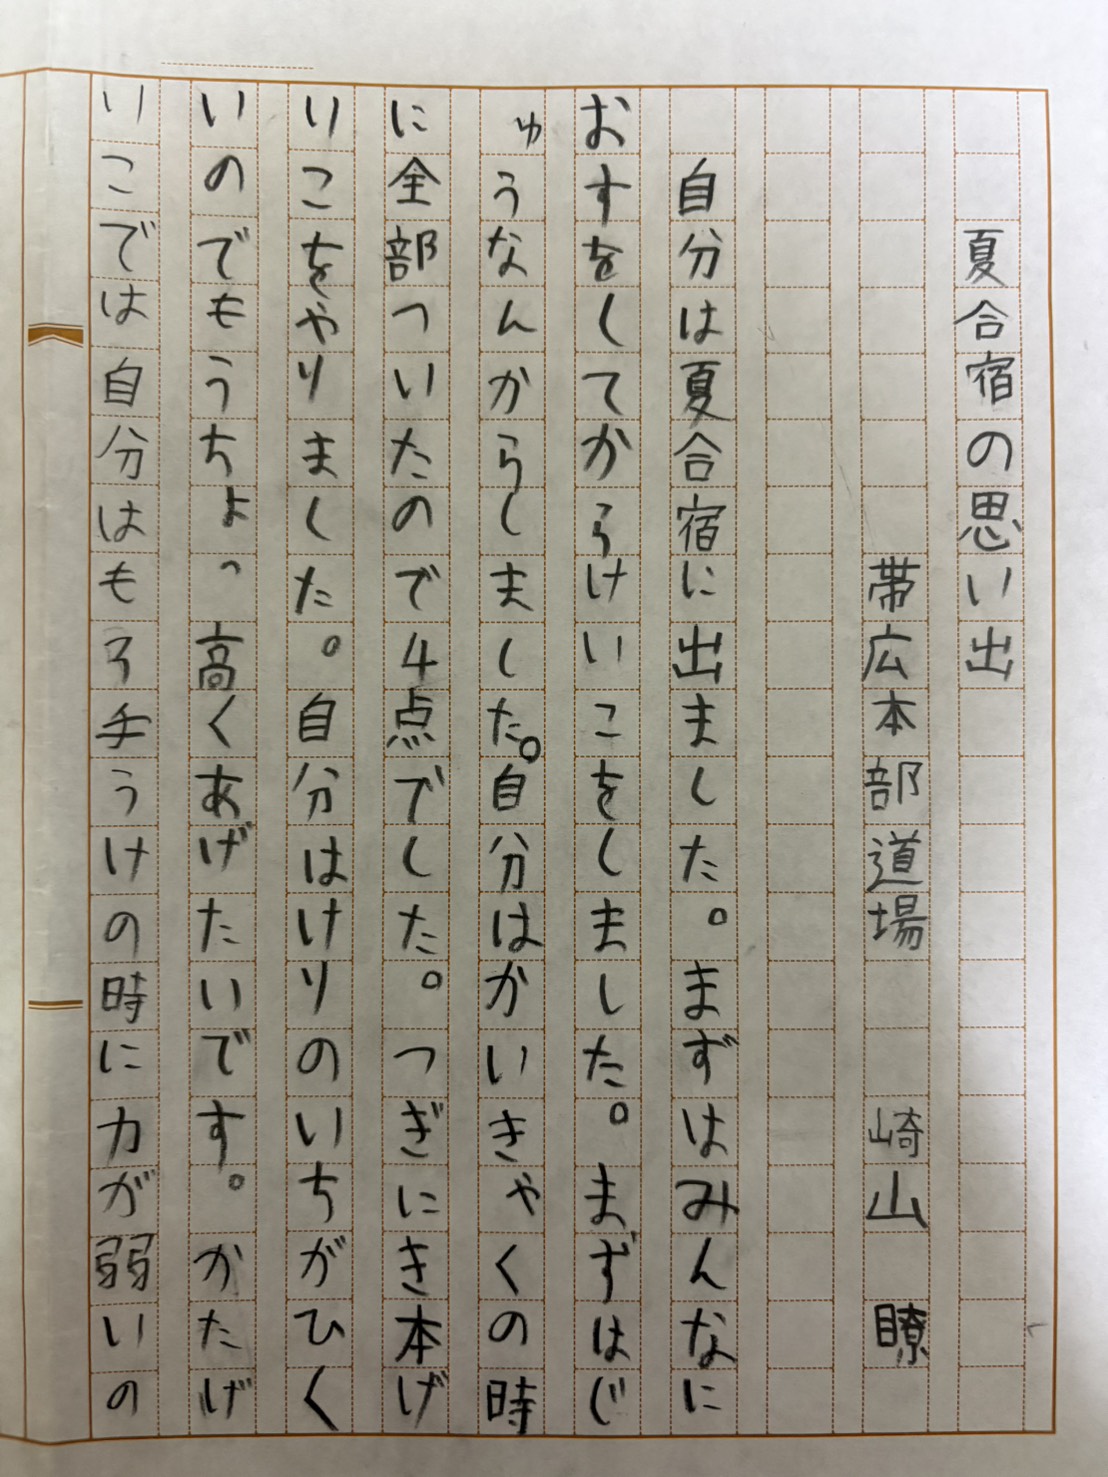 夏合宿の思い出
帯広本部道場　崎山　瞭
自分は夏合宿に出ました。まずはみんなに
おすをしてからけいこをしました。まずはじ
ゅうなんからしました。自分はかいきゃくの時
に全部ついたので4点でした。つぎにき本げ
りこをやりました。自分はけりのいちがひく
いのでもうちょっ高くあげたいです。かたげ
いこでは自分はもろ手うけの時に力が弱いの